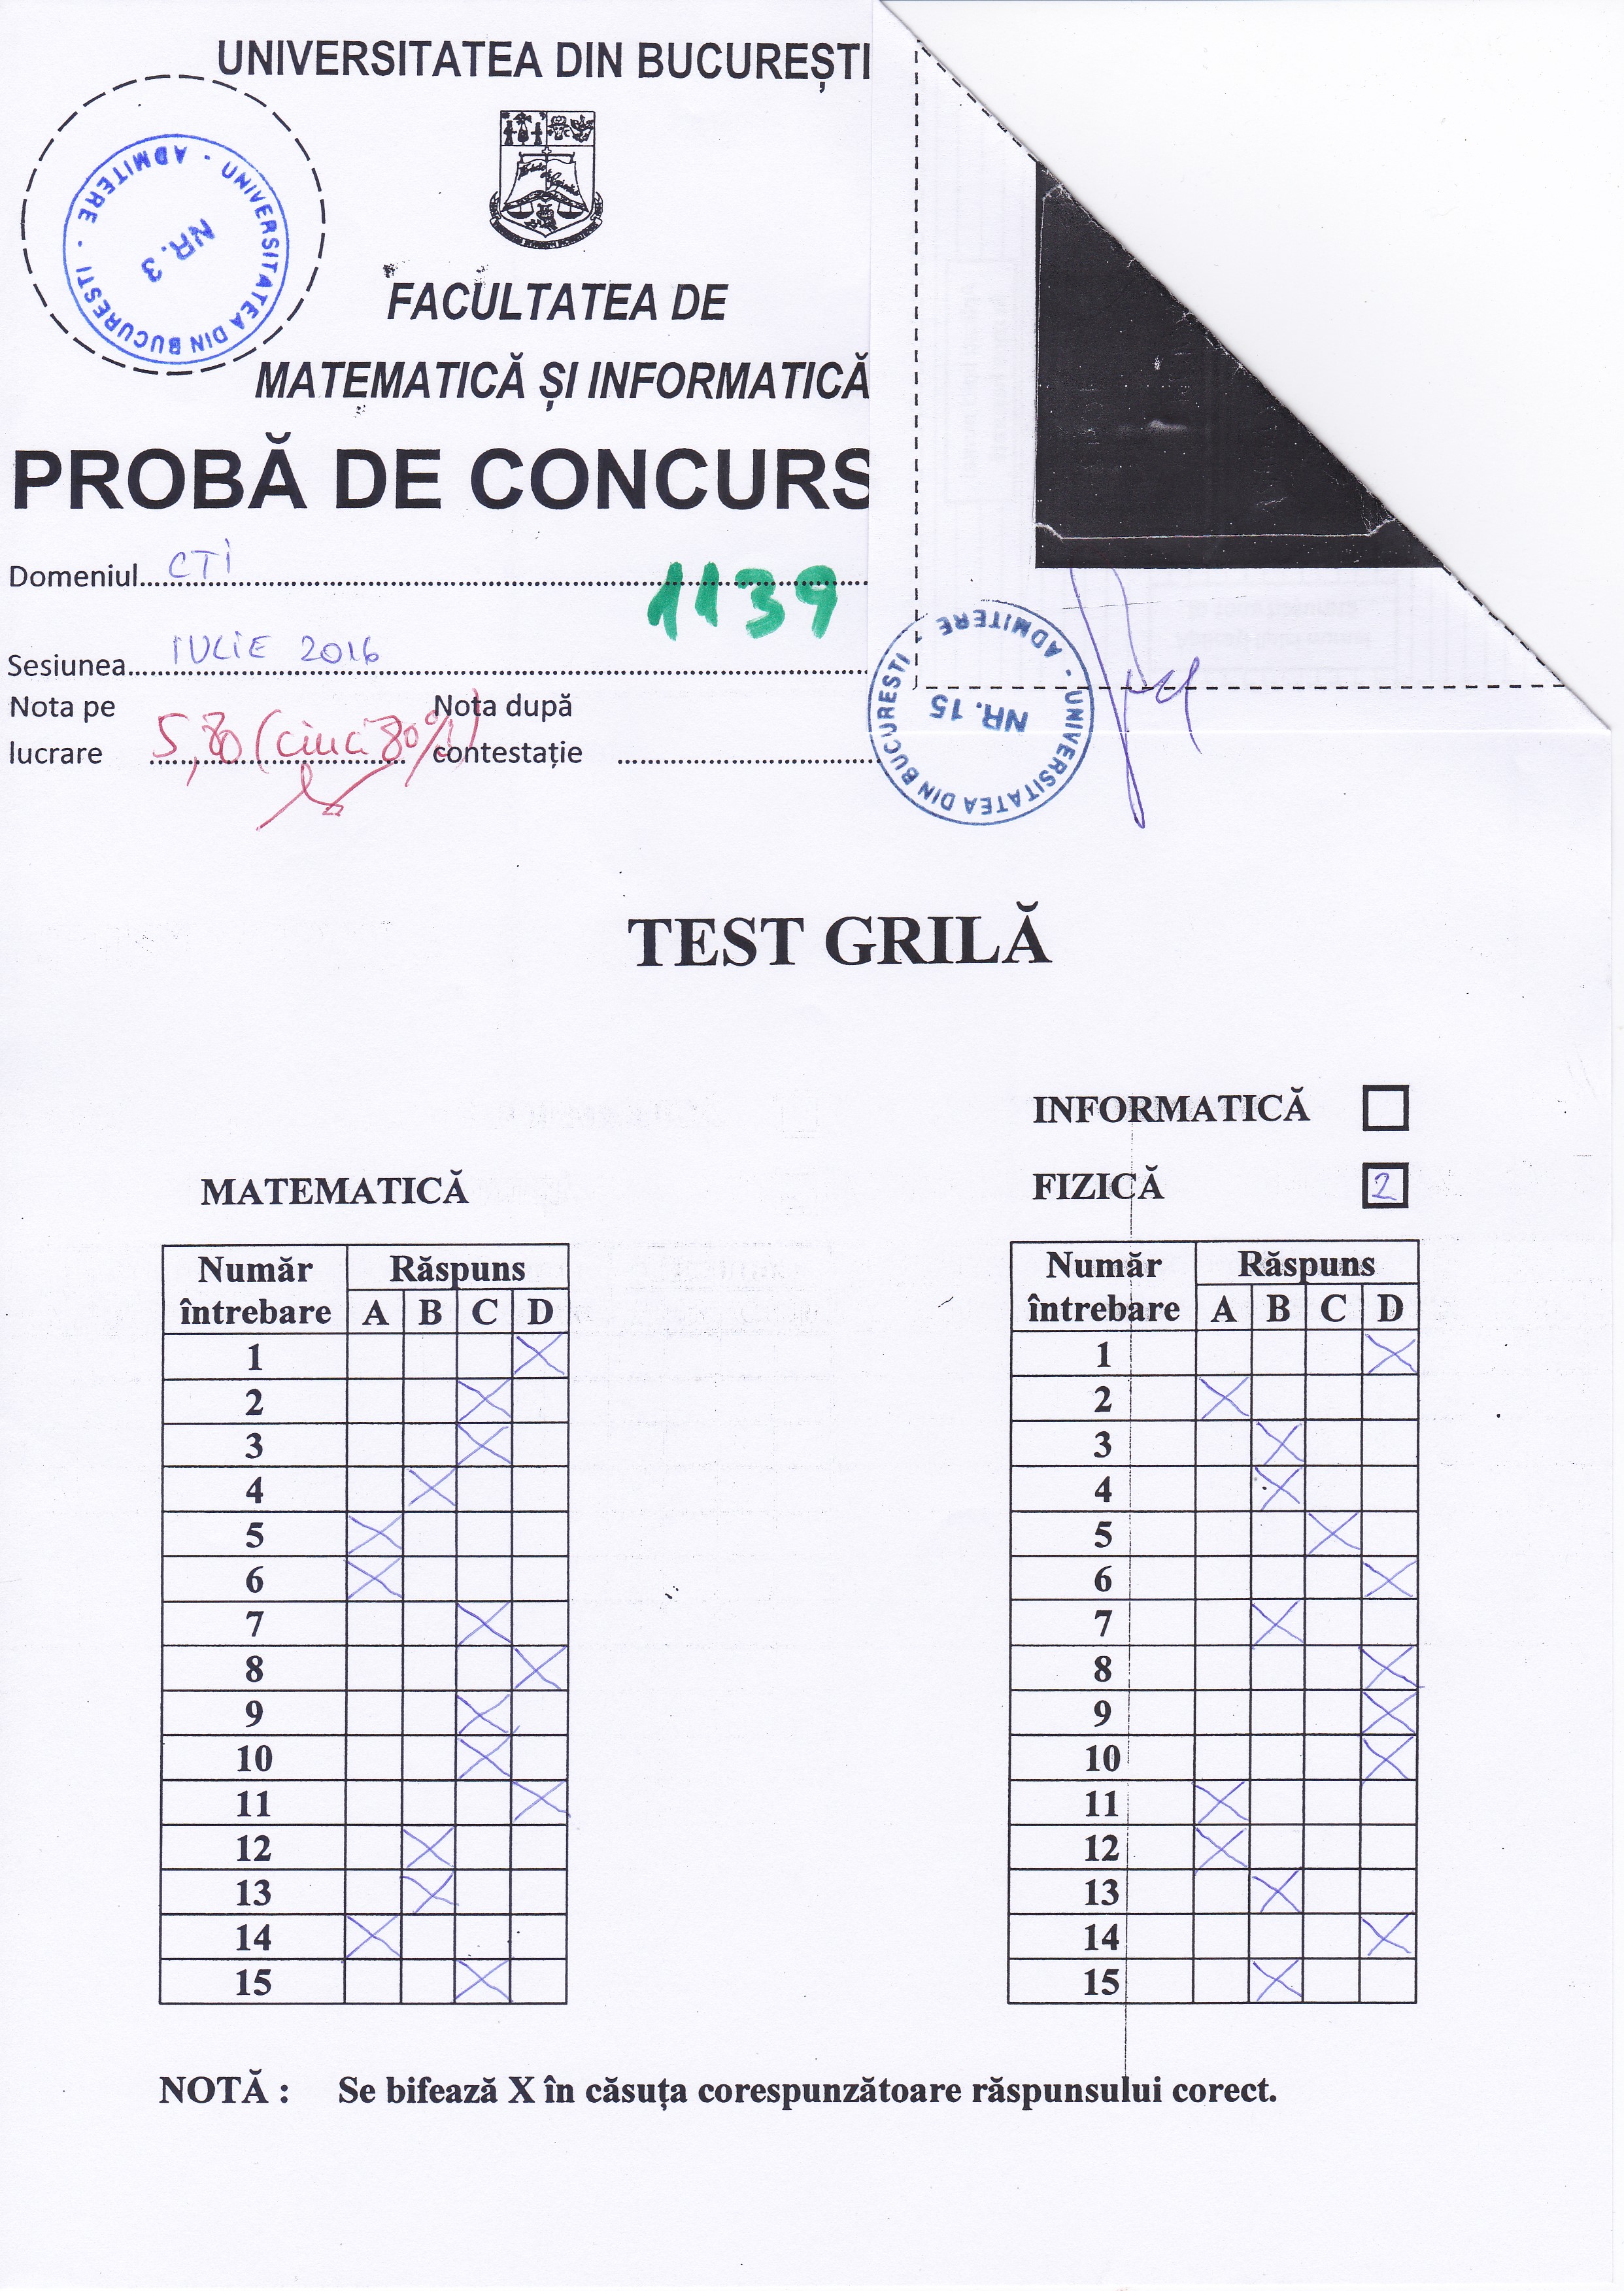 UNIVERSITATEA DIN BUCUREȘTI
UNIVERSITATEA DIN BUCURESTI - ADMITERE -
NR. 3
FACULTATEA DE
MATEMATICĂ ȘI INFORMATICĂ
PROBĂ DE CONCURS
Domeniul CTI
1139
Sesiunea IULIE 2016
Nota pe lucrare 5,80 (cinci 80%)
Nota după contestație
UNIVERSITATEA DIN BUCURESTI - ADMITERE -
NR. 15
TEST GRILĂ
INFORMATICĂ
MATEMATICĂ
FIZICĂ 2
Număr întrebare Răspuns
A B C D
1 X
2 X
3 X
4 X
5 X
6 X
7 X
8 X
9 X
10 X
11 X
12 X
13 X
14 X
15 X
Număr întrebare Răspuns
A B C D
1 X
2 X
3 X
4 X
5 X
6 X
7 X
8 X
9 X
10 X
11 X
12 X
13 X
14 X
15 X
NOTĂ : Se bifează X în căsuța corespunzătoare răspunsului corect.